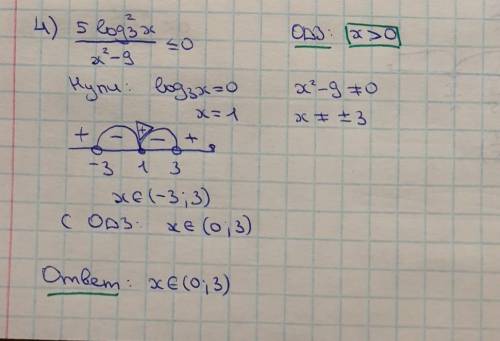 4) 5 log₃²x / x²-9 ≤0 ОДЗ: x>0
Нули: log₃x=0 x²-9≠0
x=1 x≠±3
+ - + - +
-3 1 3
x∈(-3;3)
С ОДЗ: x∈(0,3)
Ответ: x∈(0;3)